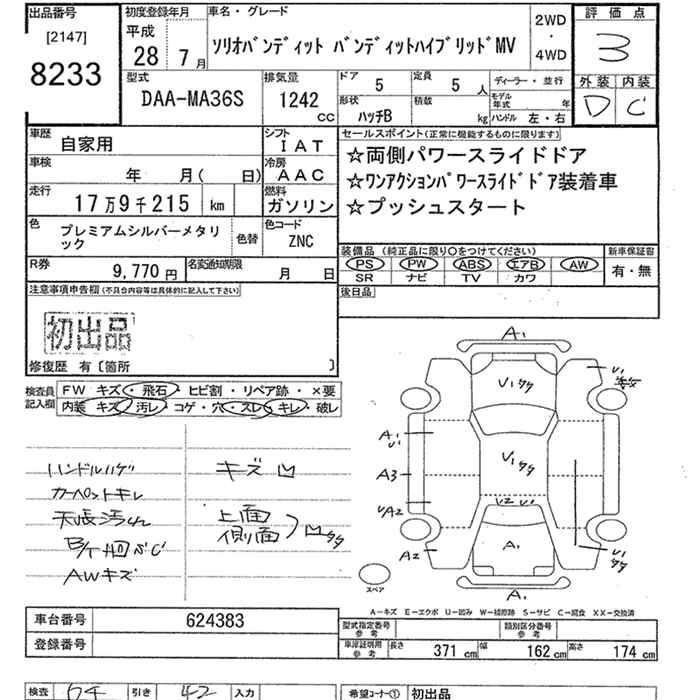 出品番号
[2147]
8233
初度登録年月
平成
28年 7月
車名・グレード
ソリオバンディット バンディットハイブリッドMV
2WD
・
4WD
評価点
3
外装 内装
D C
型式
DAA-MA36S
排気量
1242
CC
ドア 5
形状 ハッチB
定員 5 人
積載 kg
ディーラー・並行
モデル年式 年
ハンドル 左・右
車歴 自家用
車検 年 月( 日)
走行 17万9千215 km
色 プレミアムシルバーメタリ
ック
色替
シフト
IAT
冷房
AAC
燃料
ガソリン
色コード
ZNC
R券 9,770 円
名変通知期限 月 日
セールスポイント(正常に機能するものに限ります)
☆両側パワースライドドア
☆ワンアクションパワースライドドア装着車
☆プッシュスタート
装備品 (純正品に限り○をつけてください)
PS PW ABS エアB AW
SR ナビ TV カワ
新車保証書
有・無
後日品
注意事項申告欄(不具合内容等は具体的に記入して下さい)
初出品
修復歴 有〔箇所 〕
検査員
記入欄
FW キズ・飛石・ヒビ割・リペア跡・×要
内装 キズ・汚レ・コゲ・穴・スレ・キレ・破レ
ハンドルハゲ
カーペットキレ
天張汚れ
AWキズ
キズ凹
上面
側面
A1
A1
U1
A3
UA2
A2
U1
U1
U2 U1
A1
U1
U1
A1
スペア
A-キズ E-エクボ U-凹み W-補修跡 S-サビ C-腐食 XX-交換済
車台番号 624383
登録番号
型式指定番号
参考
類別区分番号
参考
車庫証明用
参考
長さ 371 cm 幅 162 cm 高さ 174 cm
検査 64 引き 42 入力
希望コーナー① 初出品